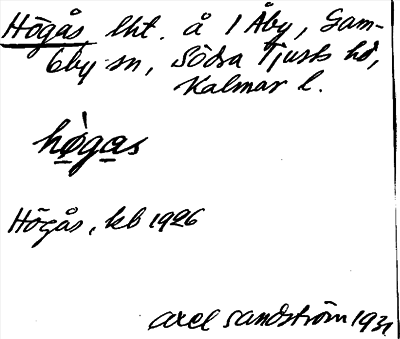 Högås, lht. å 1 Åby, Gam-
leby sn, Södra Tjusts hd,
Kalmar l.
hògas
Högås, kb 1926
Axel Sandström 1931